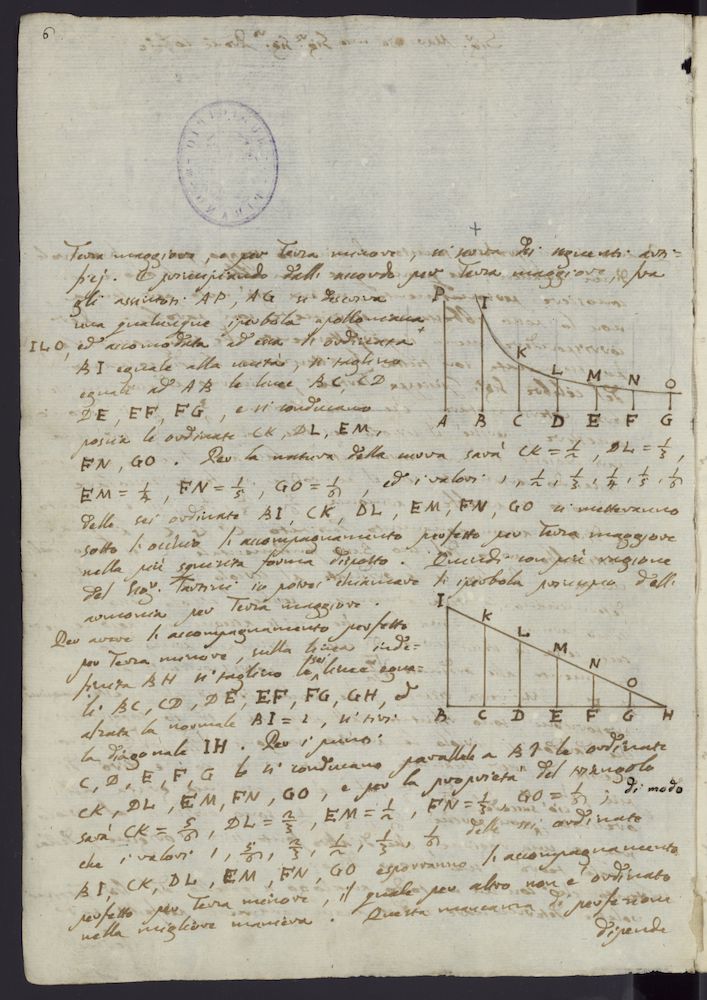 6
Terza maggiore, e per Terza minore, si serva dei seguenti arti-
fizj. E principiando dall' accordo per Terza maggiore, fra
gli assintoti AP, AG si descriva
una qualunque iperbola apolloniana
ILO, ed accomodata ad essa l' ordinata
BI eguale alla unità, si taglino
eguali ad AB le linee BC, CD
DE, EF, FG, e si conducano
poscia le ordinate CK, DL, EM,
FN, GO. Per la natura della curva sarà CK = 1/2, DL = 1/3,
EM = 1/4, FN = 1/5, GO = 1/6, ed i valori 1, 1/2, 1/3, 1/4, 1/5, 1/6
delle sei ordinate BI, CK, DL, EM, FN, GO ci metteranno
sotto l' occhio l' accompagnamento perfetto per Terza maggiore
nella più squisita forma disposto. Quindi con più ragione
del Sigr. Tartini io potrei chiamare l' iperbola principio dell'
armonia per Terza maggiore.
P I K L M N O
A B C D E F G
Per avere l' accompagnamento perfetto
per Terza minore, sulla linea inde-
finita BH si taglino le sei linee egua-
li BC, CD, DE, EF, FG, GH, ed
alzata la normale BI = 1, si tiri
la diagonale IH. Per i punti
C, D, E, F, G si conducano parallele a BI le ordinate
CK, DL, EM, FN, GO, e per la proprietà del triangolo
sarà CK = 5/6, DL = 2/3, EM = 1/2, FN = 1/3, GO = 1/6; di modo
che i valori 1, 5/6, 2/3, 1/2, 1/3, 1/6 delle sei ordinate
BI, CK, DL, EM, FN, GO esporranno l' accompagnamento
perfetto per Terza minore, il quale per altro non è ordinato
nella migliore maniera. Questa mancanza di perfezione
dipende
I K L M N O
B C D E F G H